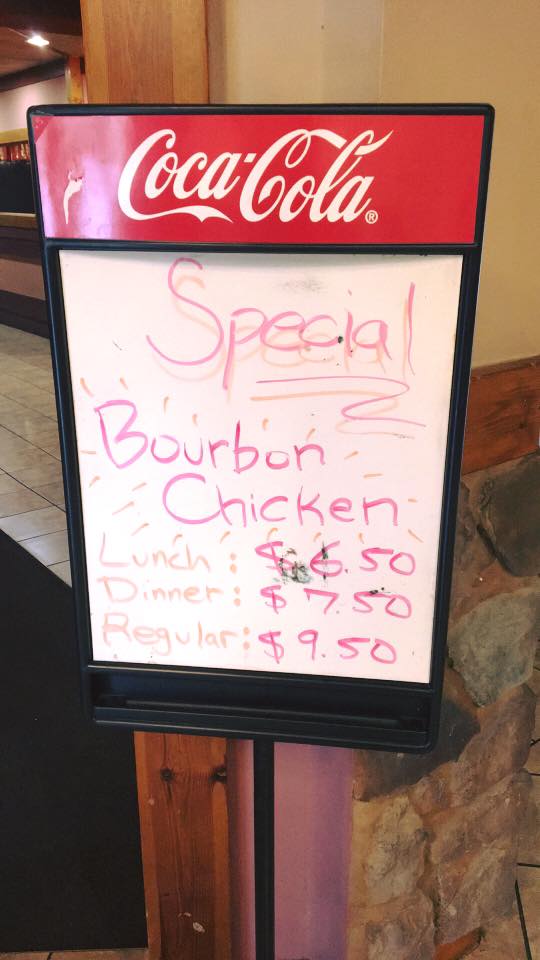 Coca-Cola®
Special
Bourbon
Chicken
Lunch: $6.50
Dinner: $7.50
Regular: $9.50